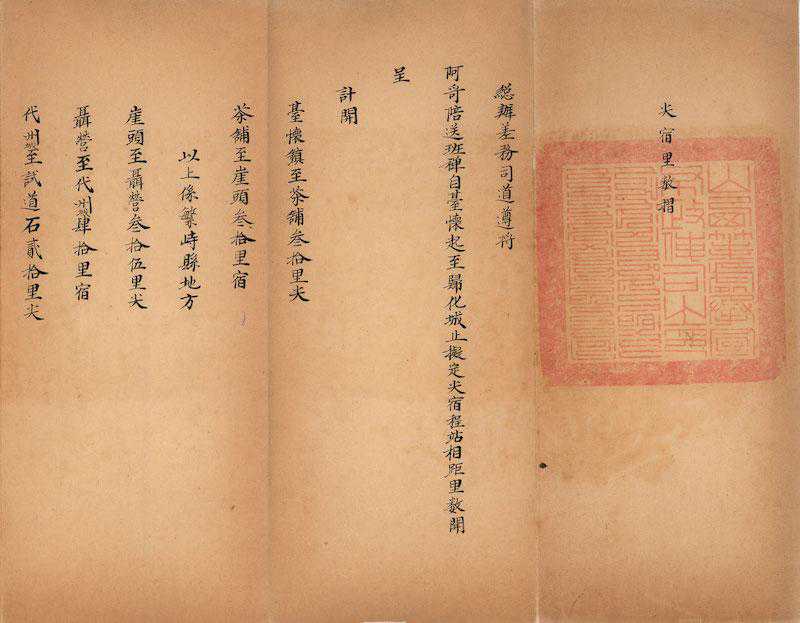 尖宿里數摺
總辦差務司道遵將
阿哥陪送班禪自臺懷起至歸化城止擬定尖宿程站相距里數開
呈
計開
臺懷鎮至茶舖叁拾里尖
茶舖至崖頭叁拾里宿
以上係繁峙縣地方
崖頭至聶營叁拾伍里尖
聶營至代州肆拾里宿
代州至試道石貳拾里尖